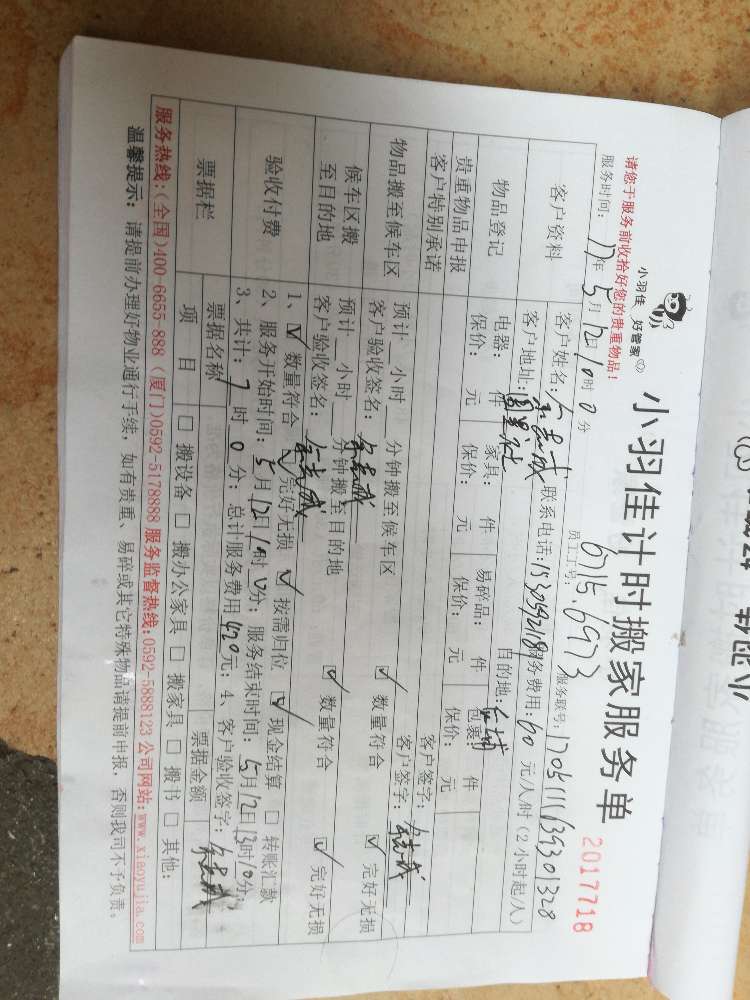 小羽佳计时搬家服务单
20177718
小羽佳 好管家
请您于服务前收拾好您的贵重物品！
服务时间：17年5月12日10时0分 员工工号：6715.6973 服务联号：
客户资料
客户姓名： 联系电话： 服务费用：60元/人/时（2小时起/人）
客户地址： 目的地：
物品登记
电器： 件 家具： 件 易碎品： 件 包裹： 件
保价： 元 保价： 元 保价： 元 保价： 元
贵重物品申报 客户签字：
客户特别承诺 客户签字：
物品搬至候车区
预计 小时 分钟搬至候车区 ☑ 数量符合 ☑ 完好无损
客户验收签名：
候车区搬至目的地
预计 小时 分钟搬至目的地 ☑ 数量符合 ☑ 完好无损
客户验收签名：
验收付费
1、☑ 数量符合 ☑ 完好无损 ☑ 按需归位 ☑ 现金结算 □ 转账汇款
2、服务开始时间：5月12日 时0分；服务结束时间：5月12日13时0分；
3、共计：7时0分；总计服务费用420元；4、客户验收签字：
票据栏
票据名称 票据金额
项目 □ 搬设备 □ 搬办公家具 □ 搬家具 □ 搬书 □ 其他：
服务热线：(全国)400-6655-888 (厦门)0592-5178888 服务监督热线:0592-5888123 公司网站:www.xiaoyujia.com
温馨提示：请提前办理好物业通行手续，如有贵重、易碎或其它特殊物品请提前申报，否则我司不予负责。